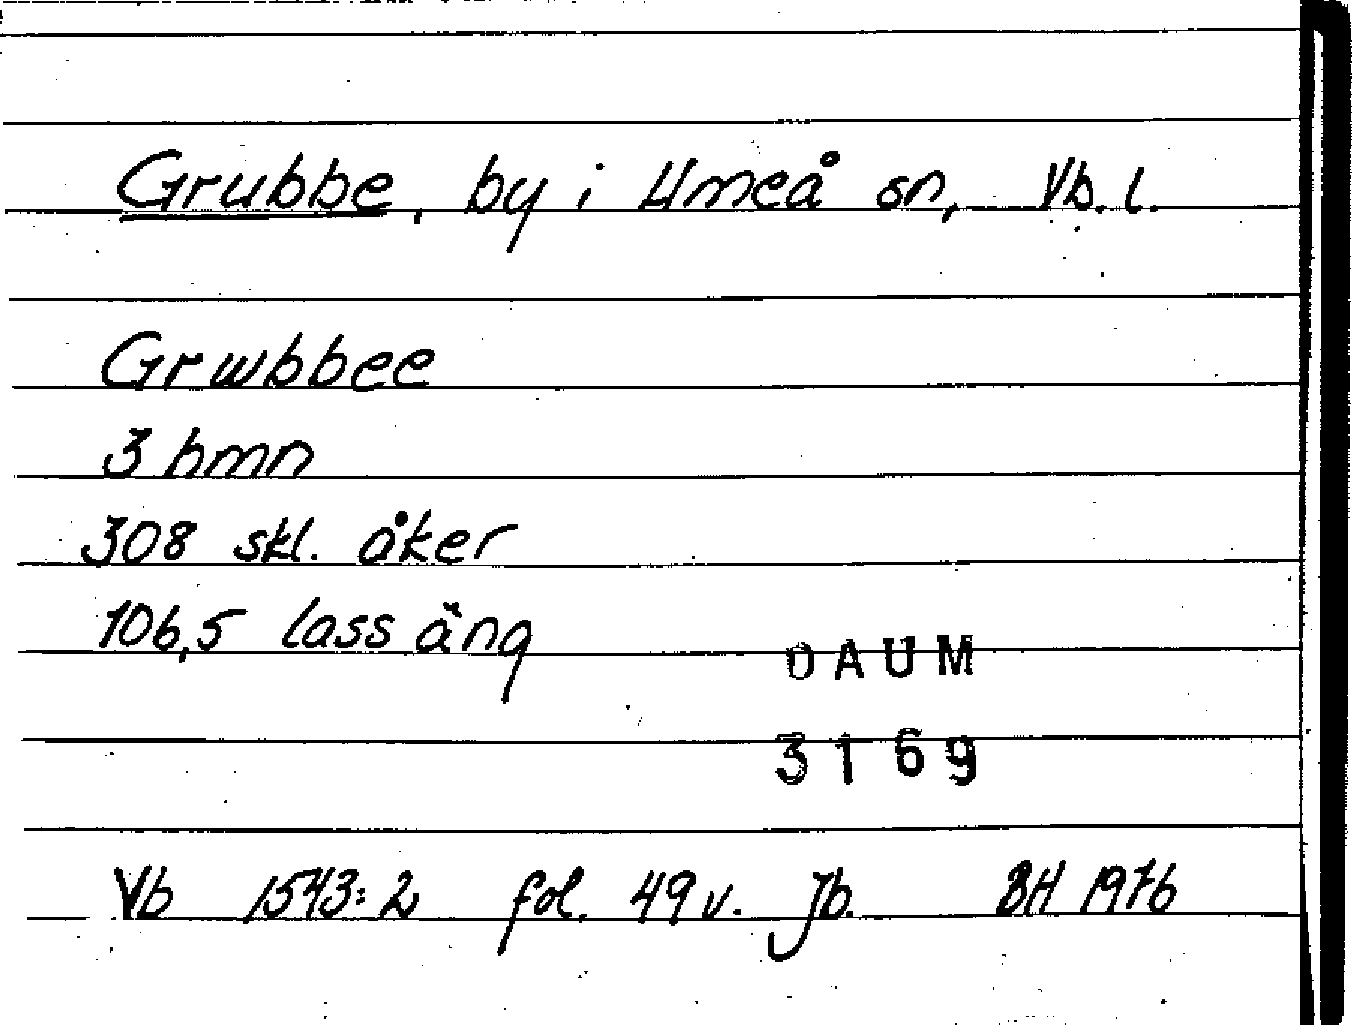 Grubbe, by i Umeå sn, Vb. l.
Grwbbee
3 hmn
308 skl. åker
106,5 lass äng
DAUM
3169
Vb 1543:2 fol. 49 v. Jb. BH 1976